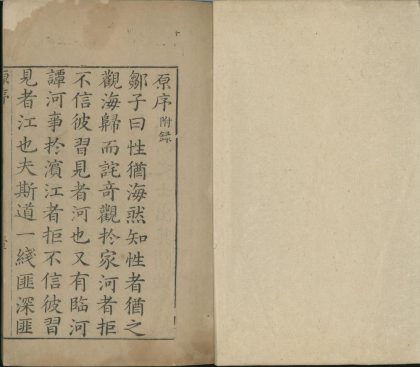 原序附録
鄒子曰性猶海然知性者猶之
觀海歸而詫奇觀扵家河者拒
不信彼習見者河也又有臨河
譚河事扵濱江者拒不信彼習
見者江也夫斯道一綫匪深匪
原序